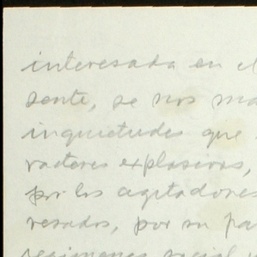 interesada en el
sente, se nos ma
inquietudes que
racteres explosivos,
por los agitadores
resados, por su pa
regimenes social y